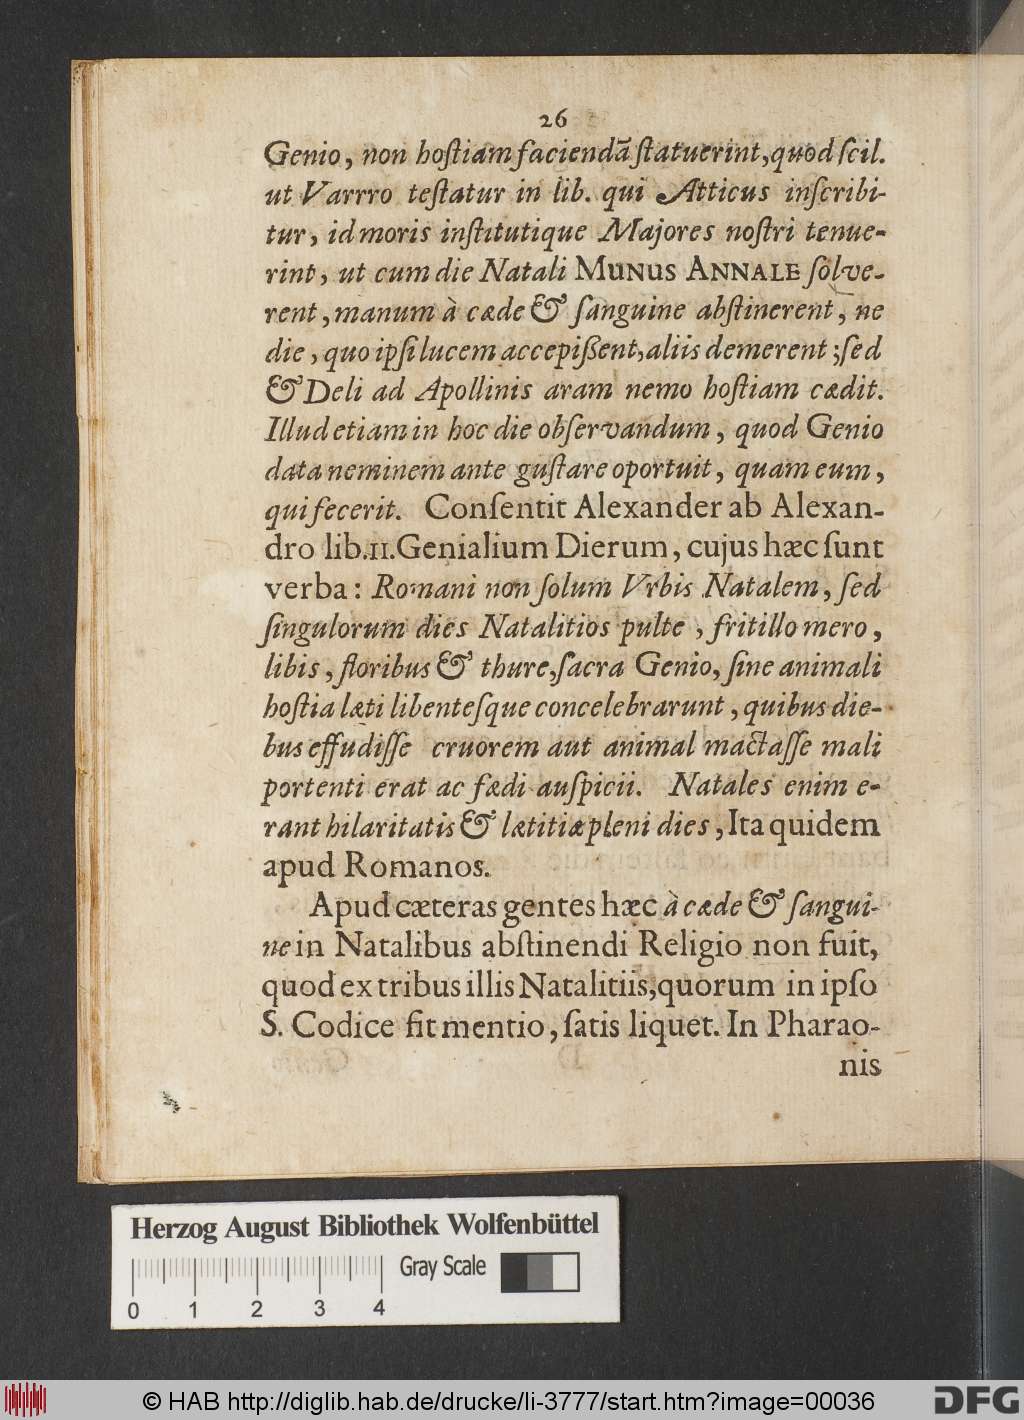 26
Genio, non hoſtiam faciendã ſtatuerint, quod ſcil.
ut Varrro teſtatur in lib. qui Atticus inſcribi-
tur, id moris inſtitutique Majores noſtri tenue-
rint, ut cum die Natali MUNUS ANNALE ſolve-
rent, manum à cæde & ſanguine abſtinerent, ne
die, quo ipſi lucem accepißent, aliis demerent; ſed
& Deli ad Apollinis aram nemo hoſtiam cædit.
Illud etiam in hoc die obſervandum, quod Genio
data neminem ante guſtare oportuit, quam eum,
qui fecerit. Conſentit Alexander ab Alexan-
dro lib. II. Genialium Dierum, cujus hæc ſunt
verba: Romani non ſolum Vrbis Natalem, ſed
ſingulorum dies Natalitios pulte, fritillo mero,
libis, floribus & thure, ſacra Genio, ſine animali
hoſtia læti libenteſque concelebrarunt, quibus die-
bus effudiſſe cruorem aut animal mactaſſe mali
portenti erat ac fædi auſpicii. Natales enim e-
rant hilaritatis & lætitiæ pleni dies, Ita quidem
apud Romanos.
Apud cæteras gentes hæc à cæde & ſangui-
ne in Natalibus abſtinendi Religio non fuit,
quod ex tribus illis Natalitiis, quorum in ipſo
S. Codice fit mentio, ſatis liquet. In Pharao-
nis
Herzog August Bibliothek Wolfenbüttel
Gray Scale
0 1 2 3 4
© HAB http://diglib.hab.de/drucke/li-3777/start.htm?image=00036
DFG